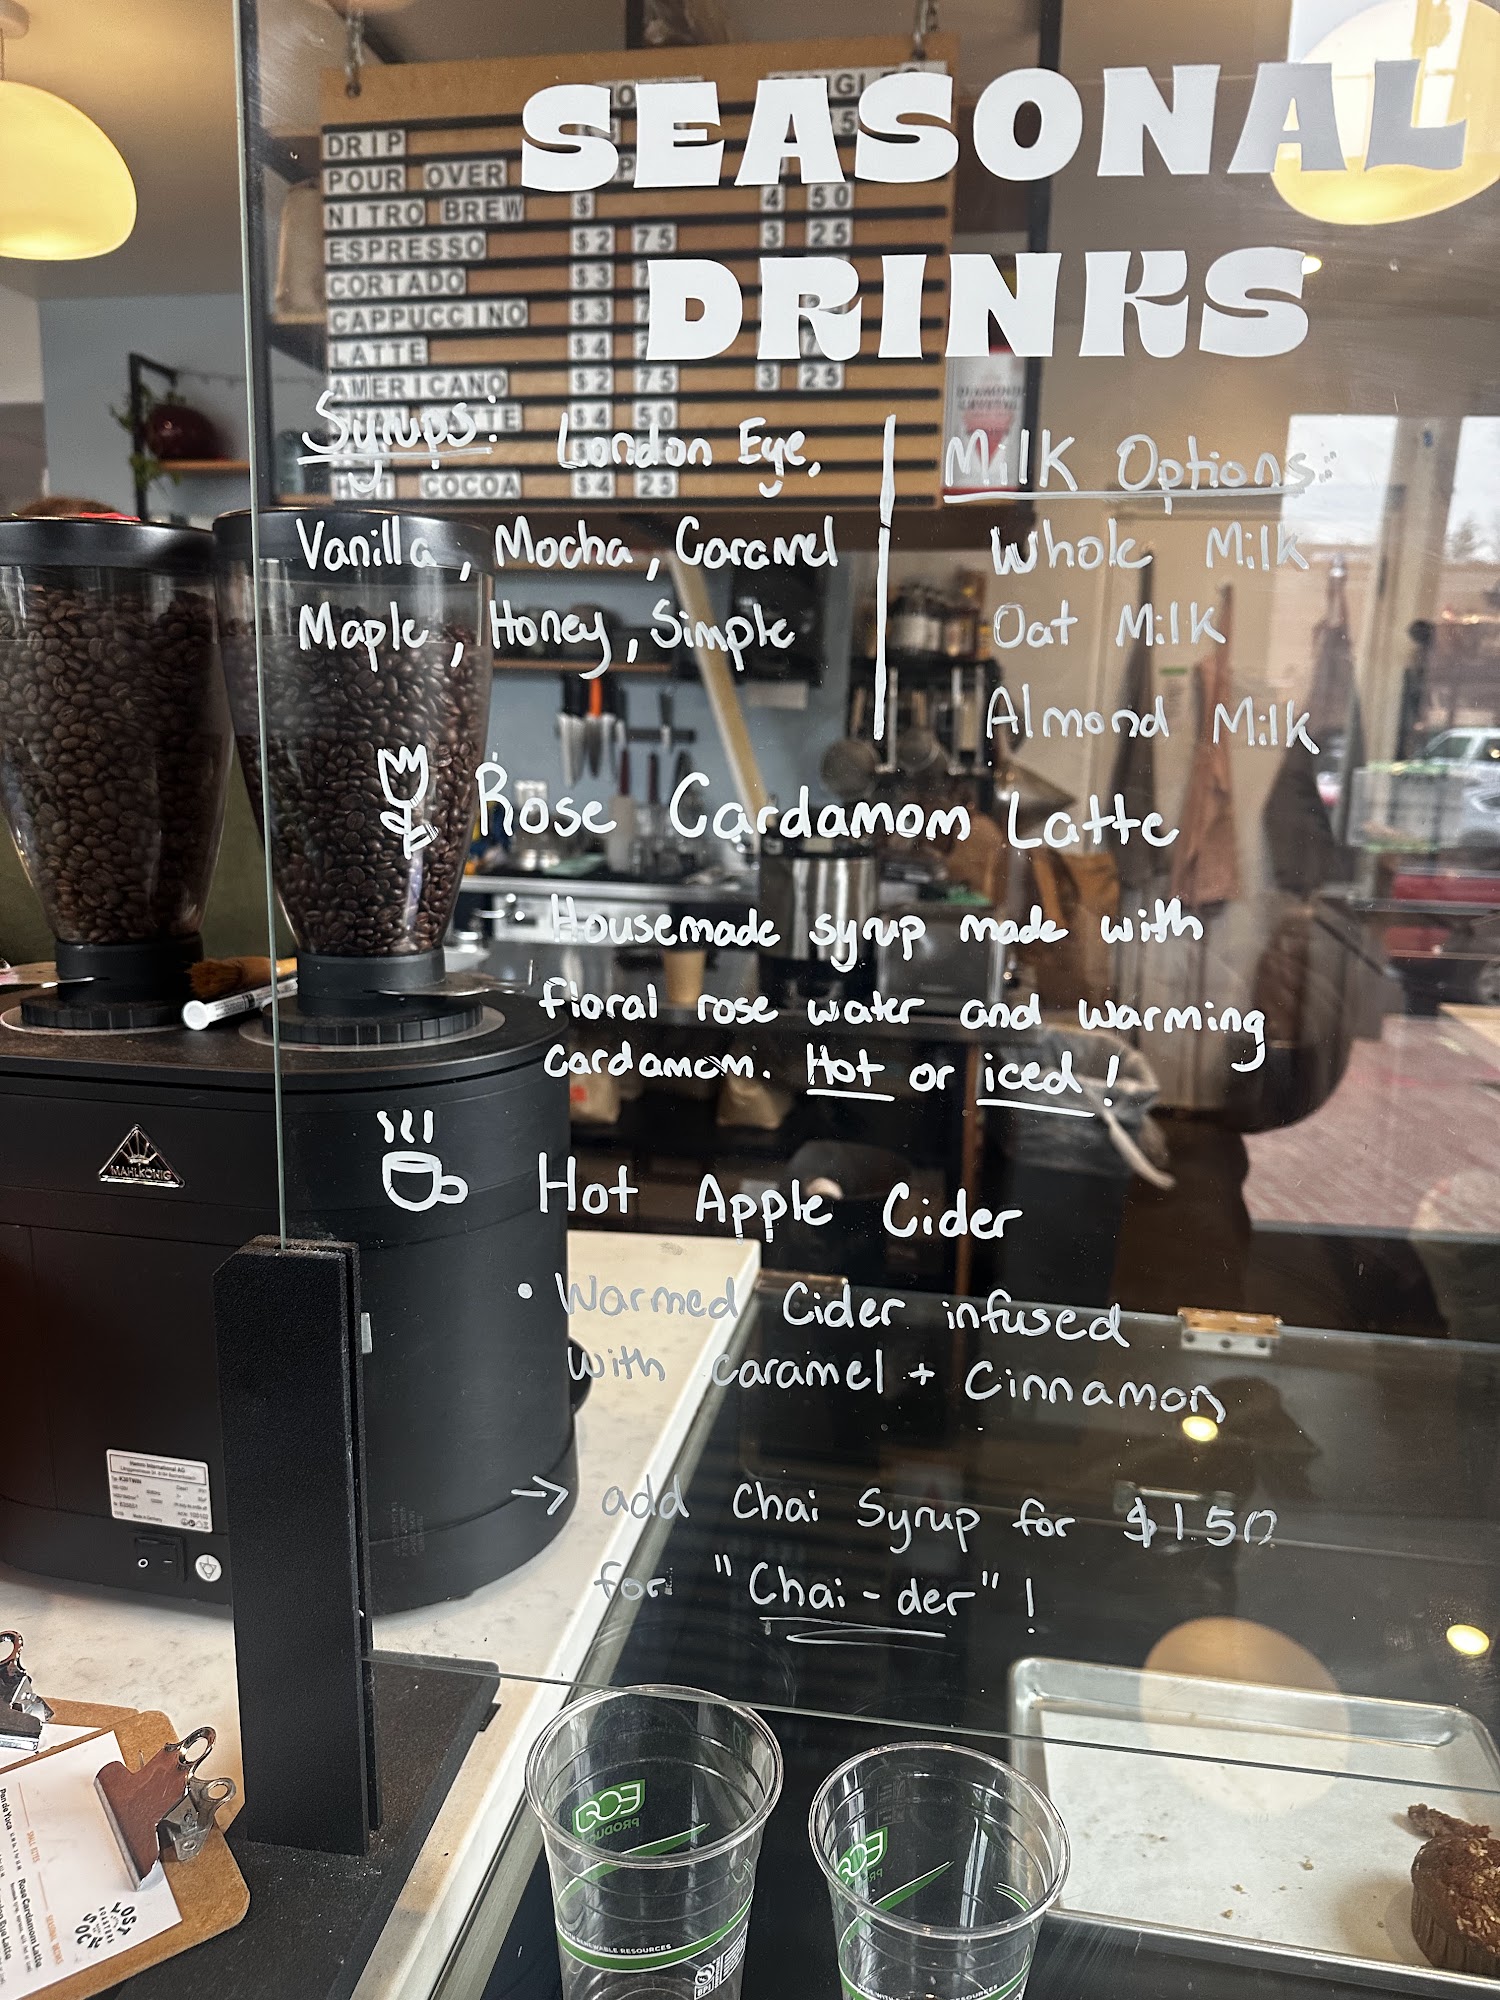 SEASONAL
DRINKS
DRIP
POUR OVER
NITRO BREW $ 4 50
ESPRESSO $2 75 3 25
CORTADO $3
CAPPUCCINO $3
LATTE $4
AMERICANO $2 75 3 25
$4 50
HOT COCOA $4 25
Syrups: London Eye,
Vanilla, Mocha, Caramel
Maple, Honey, Simple
Milk Options:
Whole Milk
Oat Milk
Almond Milk
Rose Cardamom Latte
Housemade syrup made with
floral rose water and warming
cardamom. Hot or iced!
Hot Apple Cider
• Warmed Cider infused
with caramel + Cinnamon
→ add Chai Syrup for $1.50
for "Chai-der"!
MAHLKÖNIG
ECO
PRODUCT
ECO
Rose Cardamom Latte